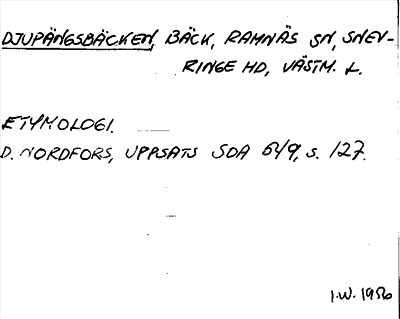 DJUPÄNGSBÄCKEN, BÄCK, RAMNÄS SN, SNEV-
RINGE HD, VÄSTM. L.
ETYMOLOGI.
D. NORDFORS, UPPSATS SOA 6/9, s. 127.
I.W. 1956